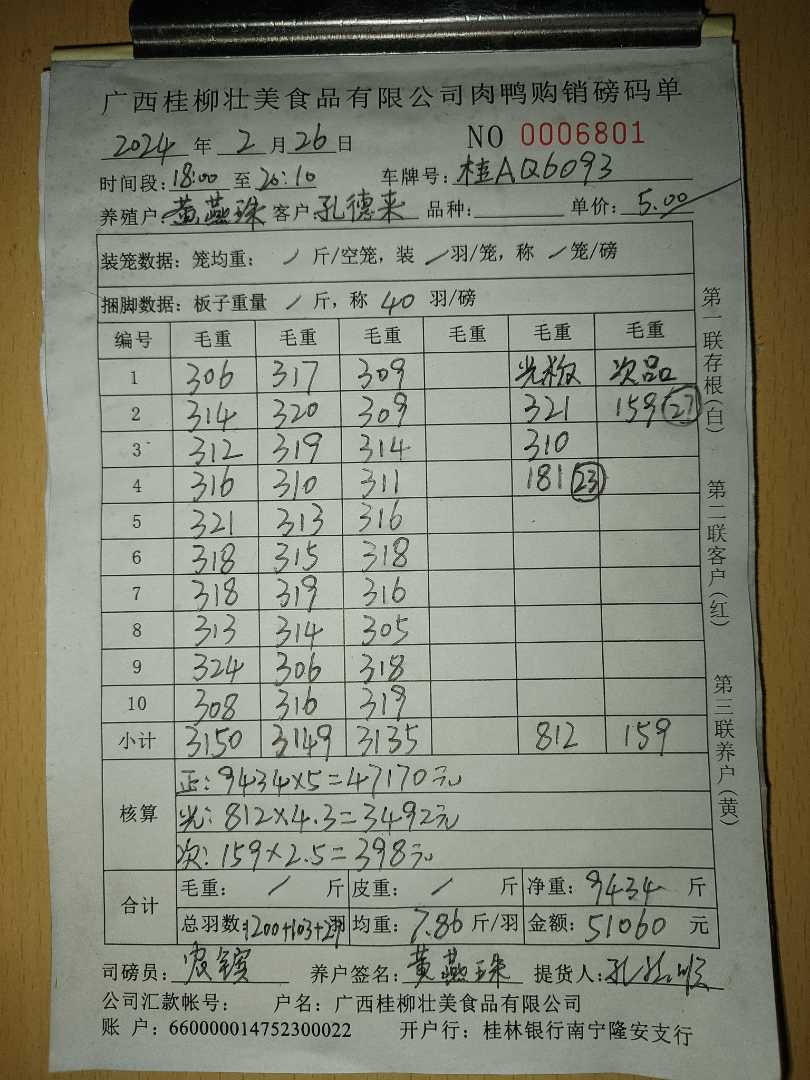 广西桂柳壮美食品有限公司肉鸭购销磅码单
2024 年 2 月 26 日 NO 0006801
时间段: 18:00 至 20:10 车牌号: 桂AQ6093
养殖户: 黄燕珠 客户: 孔德来 品种: 单价: 5.00
装笼数据: 笼均重: / 斤/空笼, 装 / 羽/笼, 称 / 笼/磅
捆脚数据: 板子重量 / 斤, 称 40 羽/磅
编号 毛重 毛重 毛重 毛重 毛重 毛重
1 306 317 309 次品
2 314 320 309 321 159 (27)
3 312 319 314 310
4 316 310 311 181 (23)
5 321 313 316
6 318 315 318
7 318 319 316
8 313 314 305
9 324 306 318
10 308 316 319
小计 3150 3149 3135 812 159
核算
正: 9434×5=47170元
光: 812×4.3=3492元
次: 159×2.5=398元
合计
毛重: / 斤 皮重: / 斤 净重: 9434 斤
总羽数: 1200+103+27羽 均重: 7.86 斤/羽 金额: 51060 元
司磅员: 养户签名: 黄燕珠 提货人:
公司汇款帐号: 户名: 广西桂柳壮美食品有限公司
账 户: 660000014752300022 开户行: 桂林银行南宁隆安支行
第一联存根(白)
第二联客户(红)
第三联养户(黄)